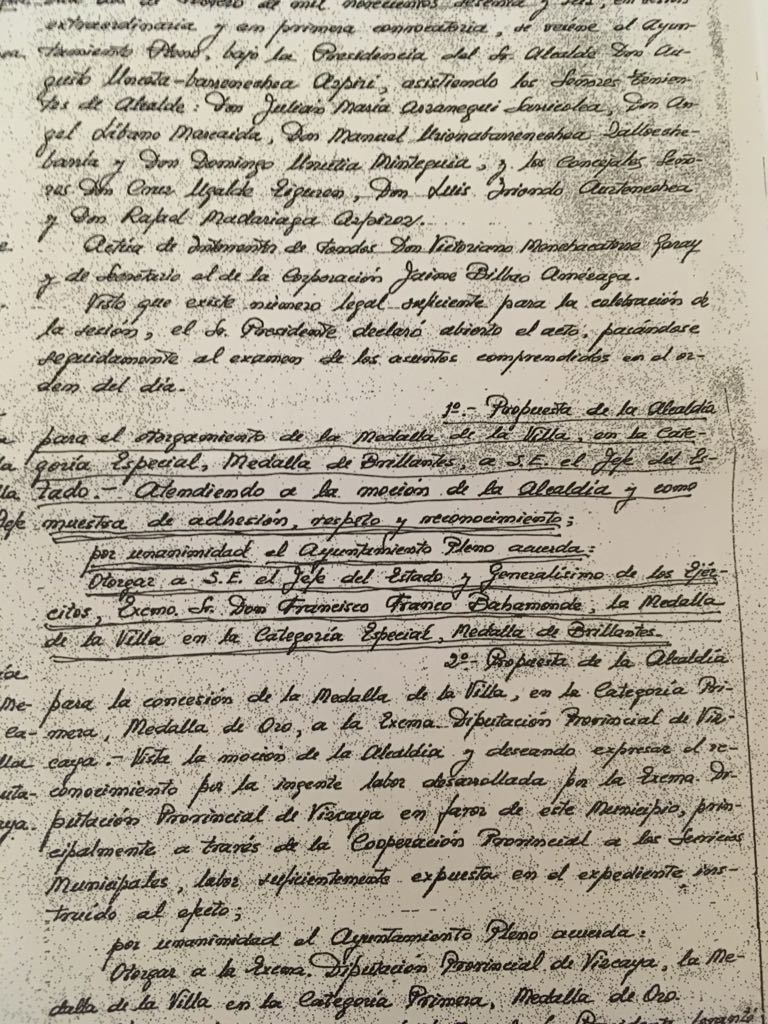 extraordinaria y en primera convocatoria, se reúne el Ayun-
tamiento Pleno, bajo la Presidencia del Sr. Alcalde Don Au-
gusto Unceta-barrenechea Azpiri, asistiendo los Señores Tenien-
tes de Alcalde: Don Julian María Arzanegui Sarricolea, Don An-
gel Líbano Marcaida, Don Manuel Urionabarrenechea
y Don Domingo Urrutia Minteguia, y los Concejales Seño-
res Don Cruz Ugalde Don Luis Iriondo Aurtenechea
y Don Rafael Madariaga Azpiroz.
Actúa de Interventor de Fondos Don Victoriano Monchacatorre Garay
y de Secretario el de la Corporación Jaime Bilbao Amézaga.
Visto que existe número legal suficiente para la celebración de
la sesión, el Sr. Presidente declaró abierto el acto, pasándose
seguidamente al examen de los asuntos comprendidos en el or-
den del día.
1º.- Propuesta de la Alcaldía
para el otorgamiento de la Medalla de la Villa, en la Cate-
goría Especial, Medalla de Brillantes, a S.E. el Jefe del Es-
tado.- Atendiendo a la moción de la Alcaldía y como
muestra de adhesión, respeto y reconocimiento;
por unanimidad el Ayuntamiento Pleno acuerda:
Otorgar a S.E. el Jefe del Estado y Generalísimo de los Ejér-
citos, Excmo. Sr. Don Francisco Franco Bahamonde, la Medalla
de la Villa en la Categoría Especial, Medalla de Brillantes.
2º.- Propuesta de la Alcaldía
para la concesión de la Medalla de la Villa, en la Categoría Pri-
mera, Medalla de Oro, a la Excma. Diputación Provincial de Viz-
caya.- Vista la moción de la Alcaldía y deseando expresar el re-
conocimiento por la ingente labor desarrollada por la Excma. Di-
putación Provincial de Vizcaya en favor de este Municipio, prin-
cipalmente a través de la Cooperación Provincial a los Servicios
Municipales, labor suficientemente expuesta en el expediente ins-
truído al efecto;
por unanimidad el Ayuntamiento Pleno acuerda:
Otorgar a la Excma. Diputación Provincial de Vizcaya, la Me-
dalla de la Villa en la Categoría Primera, Medalla de Oro.